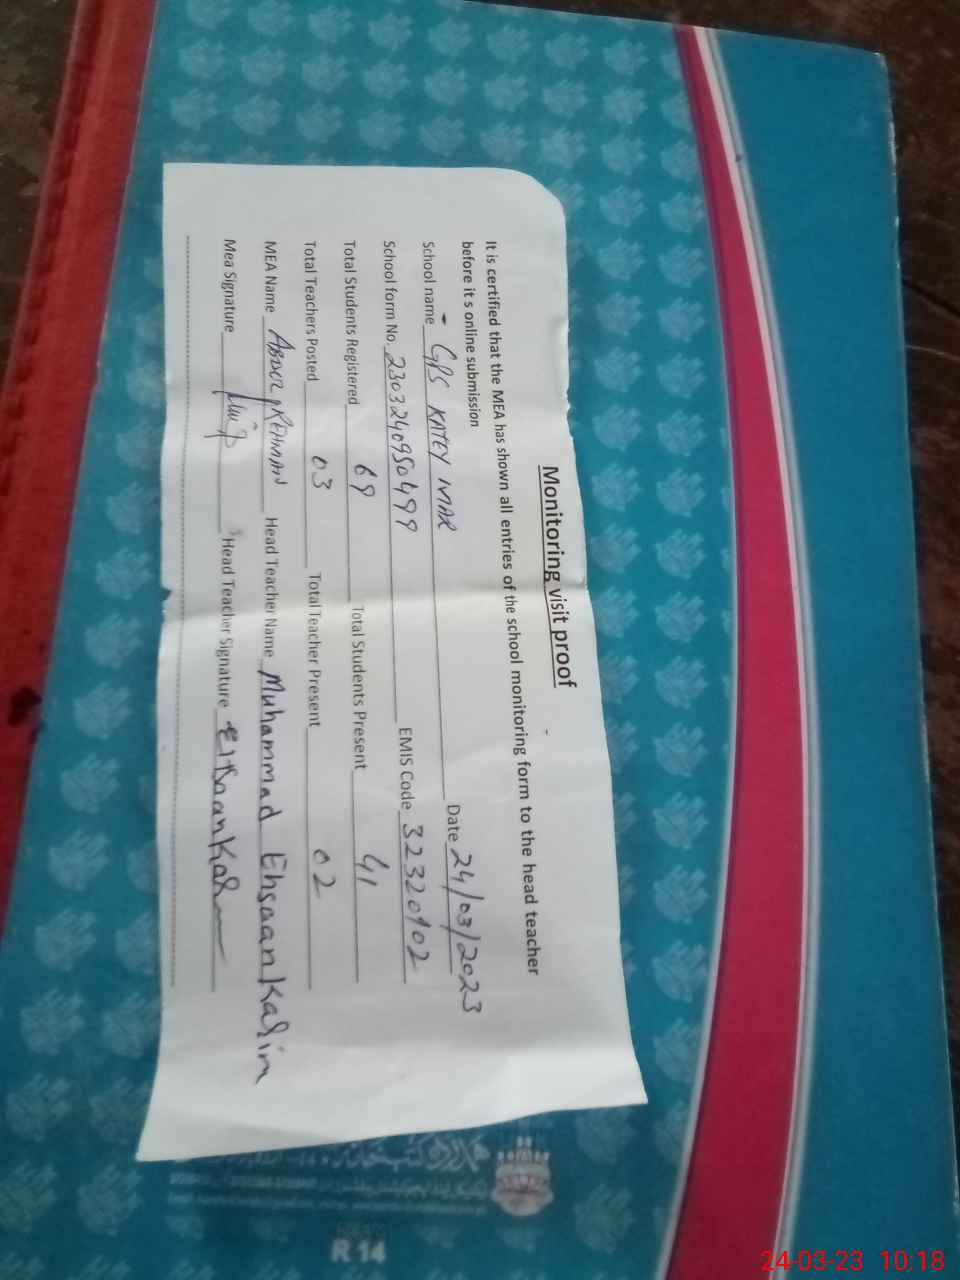 Monitoring visit proof
It is certified that the MEA has shown all entries of the school monitoring form to the head teacher
before it s online submission
School name GPS KATEY MAR Date 24/03/2023
School form No. 230324095049 EMIS Code 32320102
Total Students Registered 69 Total Students Present 41
Total Teachers Posted 03 Total Teacher Present 02
MEA Name ABDUL REHMAN Head Teacher Name Muhammad Ehsaan Karim
Mea Signature Head Teacher Signature
R 14
24-03-23 10:18